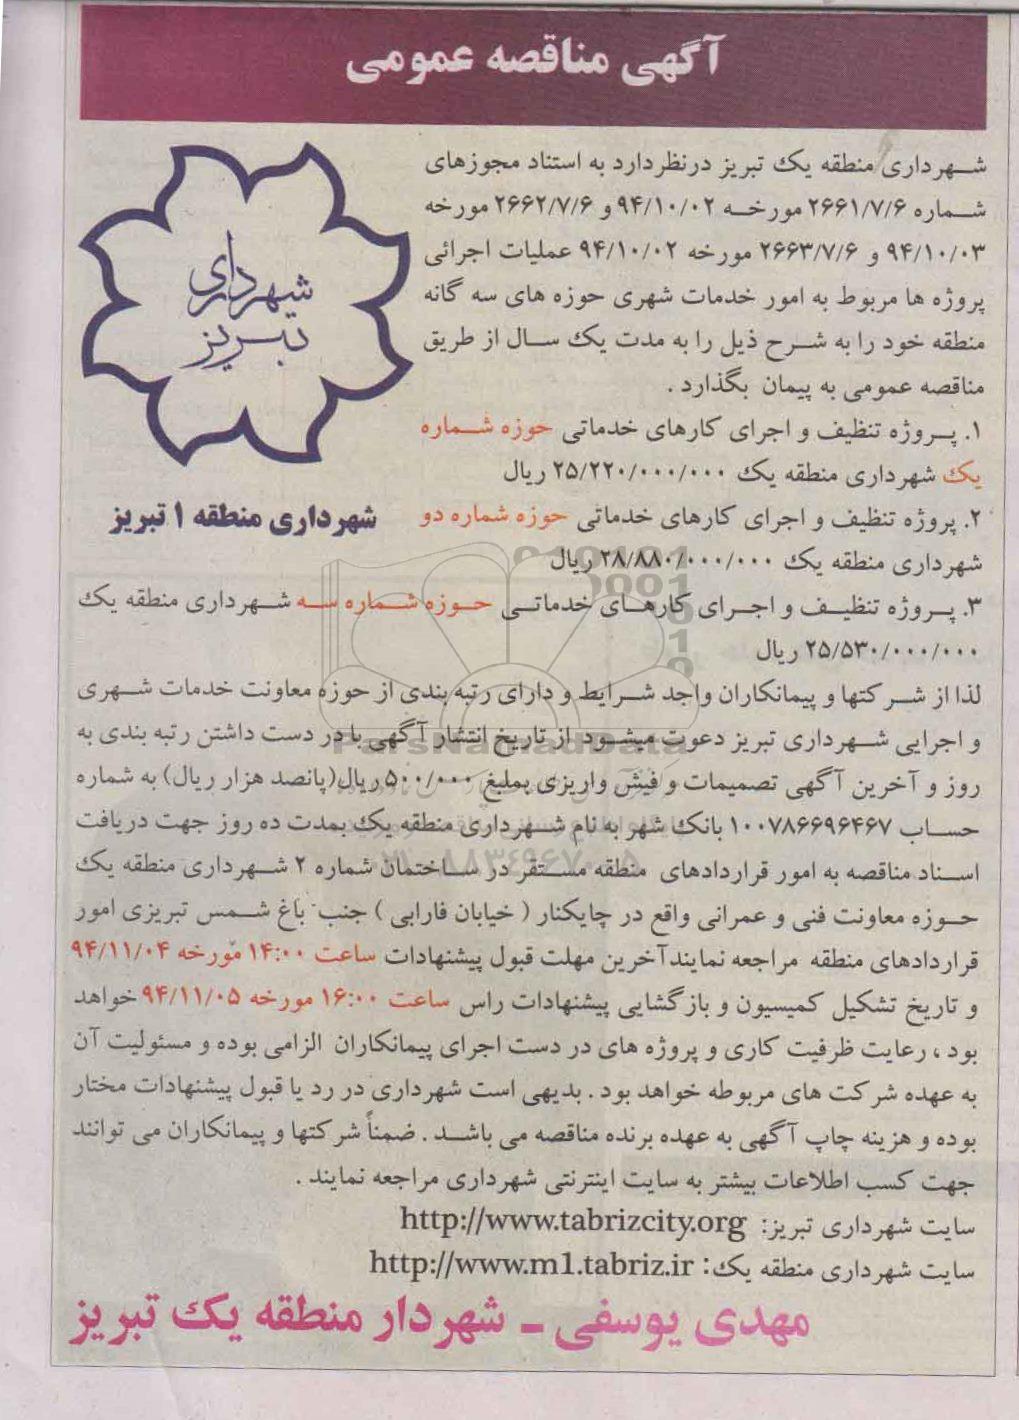 آگهی مناقصه عمومی
شهرداری منطقه یک تبریز درنظردارد به استناد مجوزهای
شماره ۲۶۶۱/۷/۶ مورخه ۹۴/۱۰/۰۲ و ۲۶۶۲/۷/۶ مورخه
۹۴/۱۰/۰۳ و ۲۶۶۳/۷/۶ مورخه ۹۴/۱۰/۰۲ عملیات اجرائی
پروژه ها مربوط به امور خدمات شهری حوزه های سه گانه
منطقه خود را به شرح ذیل را به مدت یک سال از طریق
مناقصه عمومی به پیمان بگذارد .
۱. پروژه تنظیف و اجرای کارهای خدماتی حوزه شماره
یک شهرداری منطقه یک ۲۵/۲۲۰/۰۰۰/۰۰۰ ریال
۲. پروژه تنظیف و اجرای کارهای خدماتی حوزه شماره دو
شهرداری منطقه یک ۲۸/۸۸۰/۰۰۰/۰۰۰ ریال
شهرداری
تبریز
شهرداری منطقه ۱ تبریز
۳. پروژه تنظیف و اجرای کارهای خدماتی حوزه شماره سه شهرداری منطقه یک
۲۵/۵۳۰/۰۰۰/۰۰۰ ریال
لذا از شرکتها و پیمانکاران واجد شرایط و دارای رتبه بندی از حوزه معاونت خدمات شهری
و اجرایی شهرداری تبریز دعوت میشود از تاریخ انتشار آگهی با در دست داشتن رتبه بندی به
روز و آخرین آگهی تصمیمات و فیش واریزی بمبلغ ۵۰۰/۰۰۰ ریال(پانصد هزار ریال) به شماره
حساب ۱۰۰۷۸۶۶۹۶۴۶۷ بانک شهر به نام شهرداری منطقه یک بمدت ده روز جهت دریافت
اسناد مناقصه به امور قراردادهای منطقه مستقر در ساختمان شماره ۲ شهرداری منطقه یک
حوزه معاونت فنی و عمرانی واقع در چایکنار ( خیابان فارابی ) جنب باغ شمس تبریزی امور
قراردادهای منطقه مراجعه نمایندآخرین مهلت قبول پیشنهادات ساعت ۱۴:۰۰ مورخه ۹۴/۱۱/۰۴
و تاریخ تشکیل کمیسیون و بازگشایی پیشنهادات راس ساعت ۱۶:۰۰ مورخه ۹۴/۱۱/۰۵ خواهد
بود ، رعایت ظرفیت کاری و پروژه های در دست اجرای پیمانکاران الزامی بوده و مسئولیت آن
به عهده شرکت های مربوطه خواهد بود . بدیهی است شهرداری در رد یا قبول پیشنهادات مختار
بوده و هزینه چاپ آگهی به عهده برنده مناقصه می باشد . ضمناً شرکتها و پیمانکاران می توانند
جهت کسب اطلاعات بیشتر به سایت اینترنتی شهرداری مراجعه نمایند .
سایت شهرداری تبریز: http://www.tabrizcity.org
سایت شهرداری منطقه یک: http://www.m1.tabriz.ir
مهدی یوسفی - شهردار منطقه یک تبریز
ParsNamadData